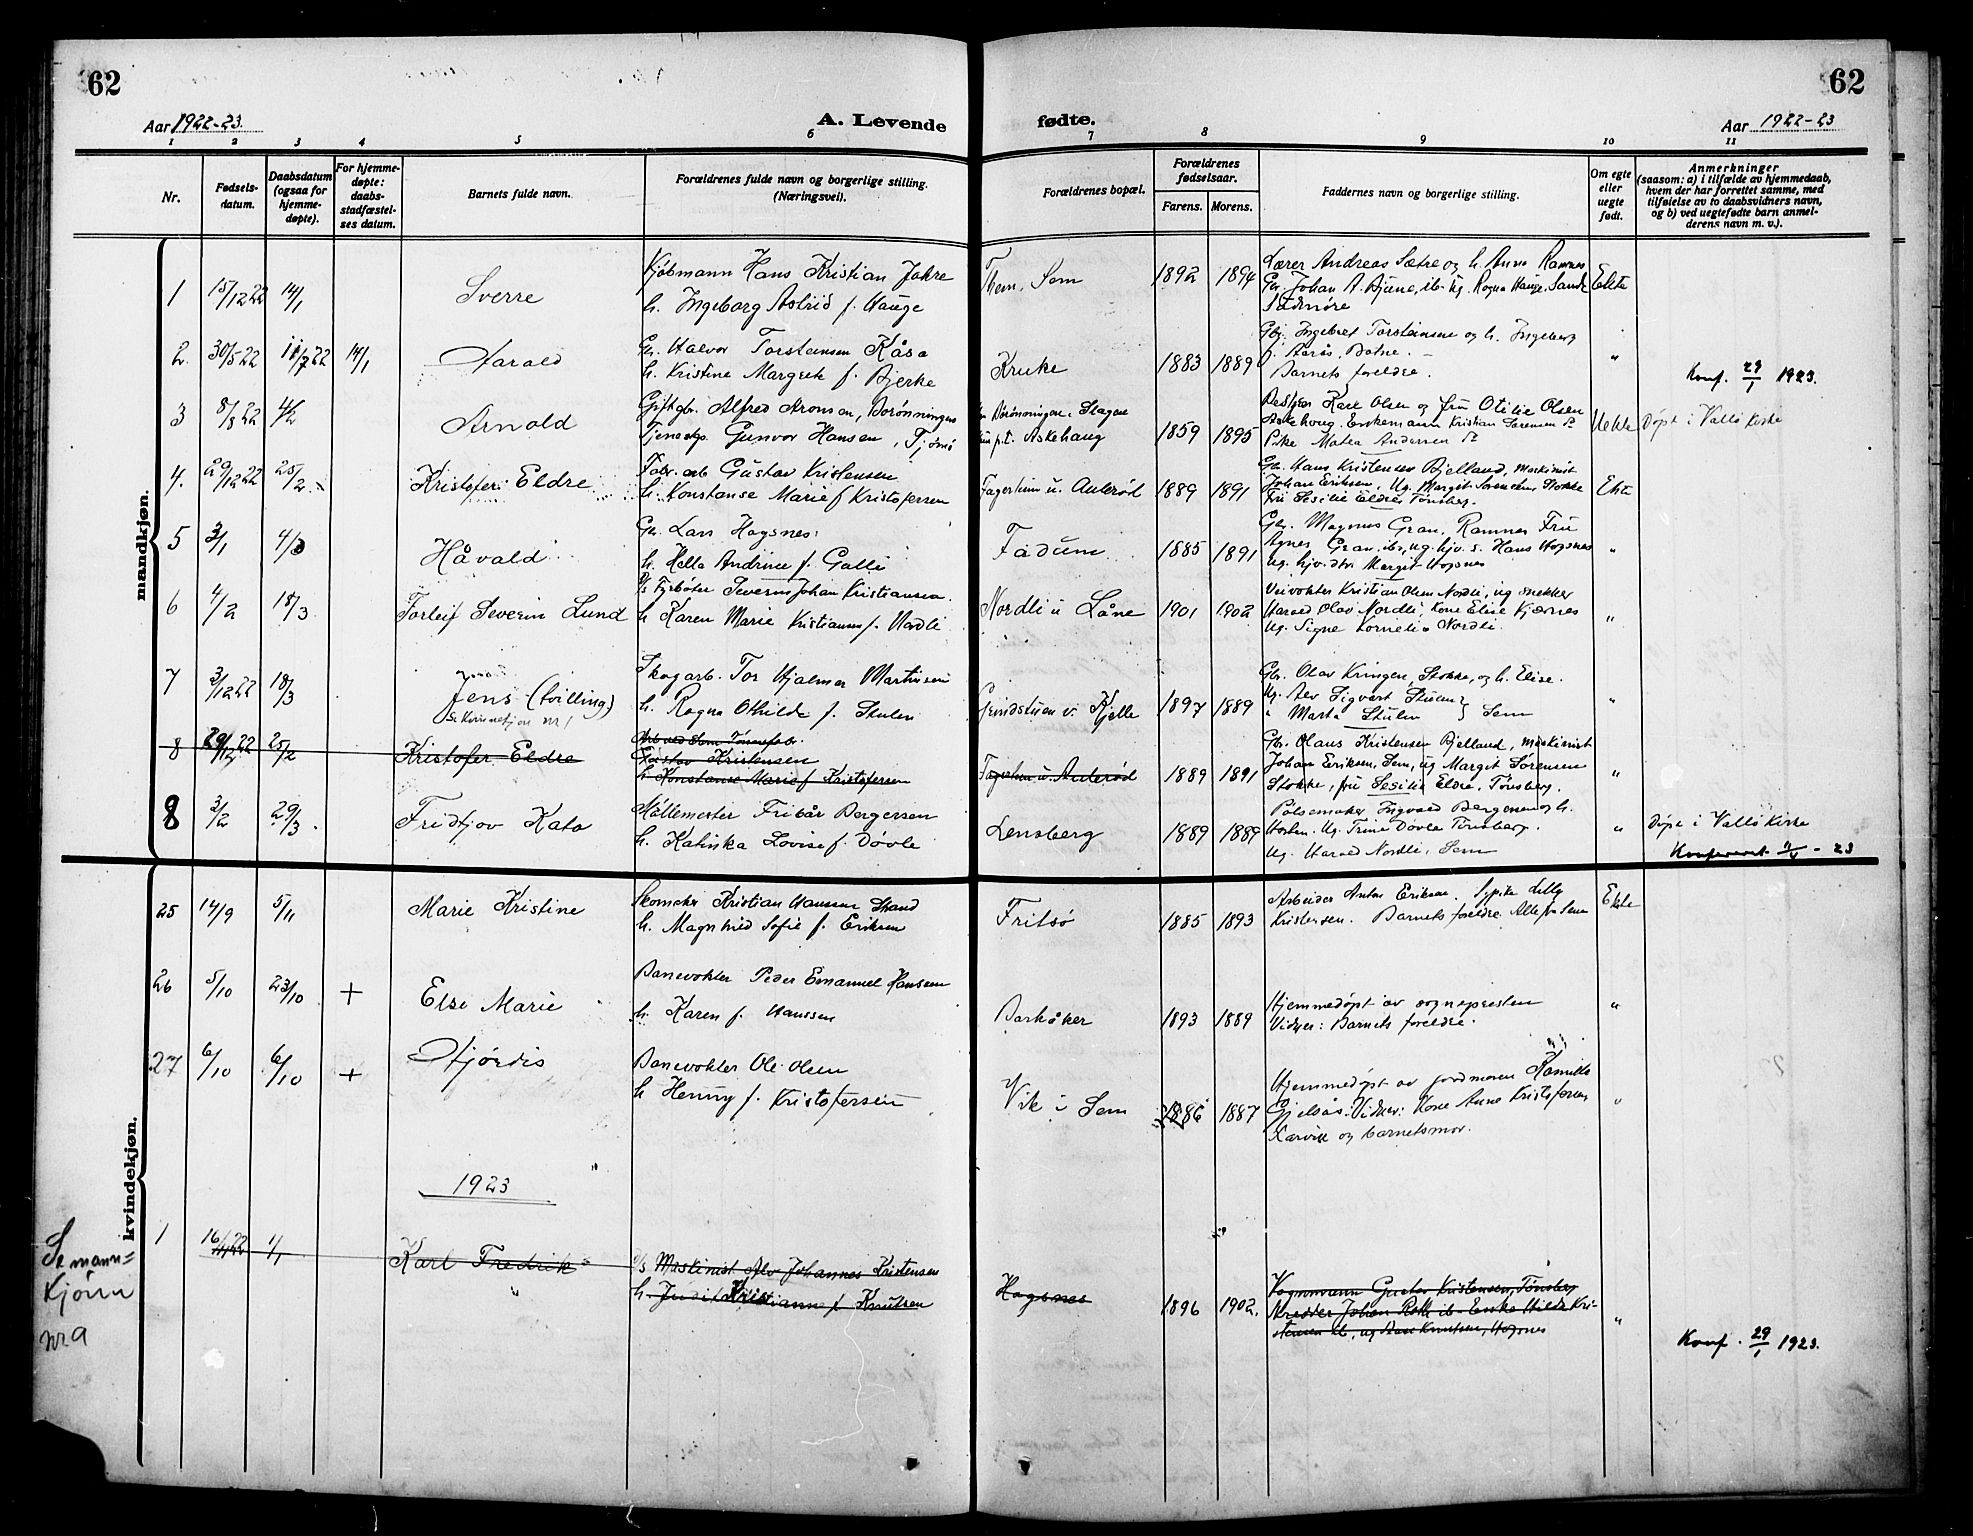 62
62
Aar 1922-23.
A. Levende
fødte.
Aar 1922-23
1 2 3 4 5 6 7 8 9 10 11
Nr.
Fødsels-
datum.
Daabsdatum
(ogsaa for
hjemme-
døpte).
For hjemme-
døpte:
daabs-
stadfæstel-
ses datum.
Barnets fulde navn.
Forældrenes fulde navn og borgerlige stilling.
(Næringsvei).
Forældrenes bopæl.
Forældrenes
fødselsaar.
Farens. Morens.
Faddernes navn og borgerlige stilling.
Om egte
eller
uegte
født.
Anmerkninger
(saasom: a) i tilfælde av hjemmedaab,
hvem der har forrettet samme, med
tilføielse av to daabsvidners navn,
og b) ved uegtefødte barn anmel-
derens navn m. v.).
mandkjøn.
1 15/12 22 14/1
Sverre
Kjøbmann Hans Kristian Jahre
h. Ingeborg Astrid f. Hauge
Sem
1892 1894
Lærer Andreas Sætre og h. Anna Ramnes
Gbr. Johan A. Bjune, ib. Ug. Ragna Hauge. Sande
Ekte
2. 30/5 22 11/7 22 14/1
Harald
Gbr. Halvor Torsteinsen Kåsa
h. Kristine Margrete f. Bjerke
Kruke
1883 1889
Gbr. Ingebret Torsteinsen og h. Ingeborg
f. Aarås, Botne. —
Barnets foreldre.
"
Konf. 29/1 1923.
3 8/8 22 4/2
Arnold
Giftgbr. Alfred Aronsen, Borønningen
Tjenestep. Gunvor Hansen, Tjømø
Borønningen, Slagen
p.t. Askehaug
1859 1895
Karl Olsen og fru Otilie Olsen
Askehoug. Enkemann Kristian Sørensen
Pike Malea Andersen
Uekte
Døpt i Vallø kirke
4. 29/12 22 25/2
Kristofer Eldre
Fabr. arb Gustav Kristensen
h. Konstanse Marie f Kristofersen
Fagertun u. Aulerød
1889 1891
Gbr. Hans Kristensen Bjelland, maskinist
Johan Eriksen, Ug. Margit Sørensen, Stokke
Fru Sesilie Eldre, Tønsberg.
Ekte
5 3/1 4/3
Håvald
Gbr. Lars Hogsnes
h. Hella Andrine f. Galli
Fadum
1885 1891
Gbr. Magnus Gran, Ramnes Fru
Agnes Gran, ib, ug. hjv. s. Hans Hogsnes
ug. hjv. dtr. Margit Hogsnes
"
6 4/2 18/3
Torleif Severin Lund
D/s Fyrbøter Severin Johan Kristiansen.
h Karen Marie Kristiansen f. Nordli
Nordli u Låne
1901 1902
Veivokter Kristian Olsen Nordli, ug snekker
Harald Olav Nordli, Kone Elise Kjærnes
Ug. Signe Kornelia Nordli.
"
7 3/12 22 18/3
Jens (tvilling)
Se kvinnekjøn nr 1
Skogarb. Tor Hjalmar Martinsen
h. Ragna Othilde f. Stulen
Grindstuen v. Kjelle
1897 1889
Gbr. Olav Kringen, Stokke, og h. Elise.
Ug. Alv Sigvart Stulen
" Marta Stulen } Sem
"
8 29/12 22 25/2
Kristofer Eldre
Arb ved Sem Tønnefabr.
Gustav Kristensen
h Konstanse Marie f Kristofersen
Fagertun u. Aulerød
1889 1891
Gbr. Olaus Kristensen Bjelland, maskinist
Johan Eriksen, Sem, ug Margit Sørensen
Stokke, fru Sesilie Eldre, Tønsberg.
"
8 3/2 29/3
Fridtjov Kato
Møllemester Fribår Bergersen
h. Katinka Lovise f. Døvle
Lensberg
1889 1889
Pølsemaker Ingvald Bergersen og h.
Ug. Trine Døvle Tønsberg.
Ug. Harald Nordli, Sem
"
Døpt i Vallø Kirke
Konfereret 11/4 - 23
kvindekjøn.
25 14/9 5/11
Marie Kristine
Skomaker Kristian Hansen Strand
h. Magnhild Sofie f. Eriksen
Fritsø
1885 1893
Arbeider Anton Eriksen. Sypike Lilly
Kristensen. Barnets foreldre Alle fra Sem
Ekte
26 5/10 23/10 +
Else Marie
Banevokter Peder Emanuel Hansen
h. Karen f. Hanssen
Barkåker
1893 1889
Hjemmedøpt av sognepresten
Vidner: Barnets foreldre.
"
27 6/10 6/10 +
Hjørdis
Banevokter Ole Olsen
h Henny f. Kristofersen
Vik i Sem
1886 1887
Hjemmedøpt av jordmoren Kamilla
Gjelsås. Vidner: Kone Anne Kristofersen
Karvik og barnetsmor.
"
1923
1 16/11 22 1/1
Karl Fredrik
D/s Maskinist Alv Johannes Kristensen
h. Judit Kristianne f. Knutsen
Hogsnes
1896 1902.
Vognmann Gustav Kristensen, Tønsberg
Johan ib. Enke Hilda Kri-
stensen ib, ug Aase Knutsen, Hogsnes
"
Konf. 29/1 1923.
Se mann=
kjønn
nr 9